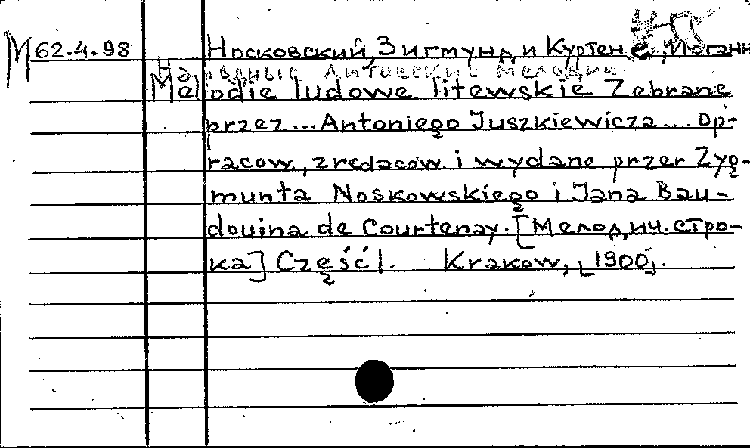 М 62.4.98 Носковский, Зигмунд и Куртене, Иоганн
Народные Литовские мелодии
Melodie ludowe litewskie Zebrane
przez ... Antoniego Juszkiewicza ... op-
racow., zredacow i wydane przez Zyg-
munta Noskowskiego i Jana Bau-
douina de Courtenay. [Мелодич. стро-
ка] Część I. Krakow, [1900].